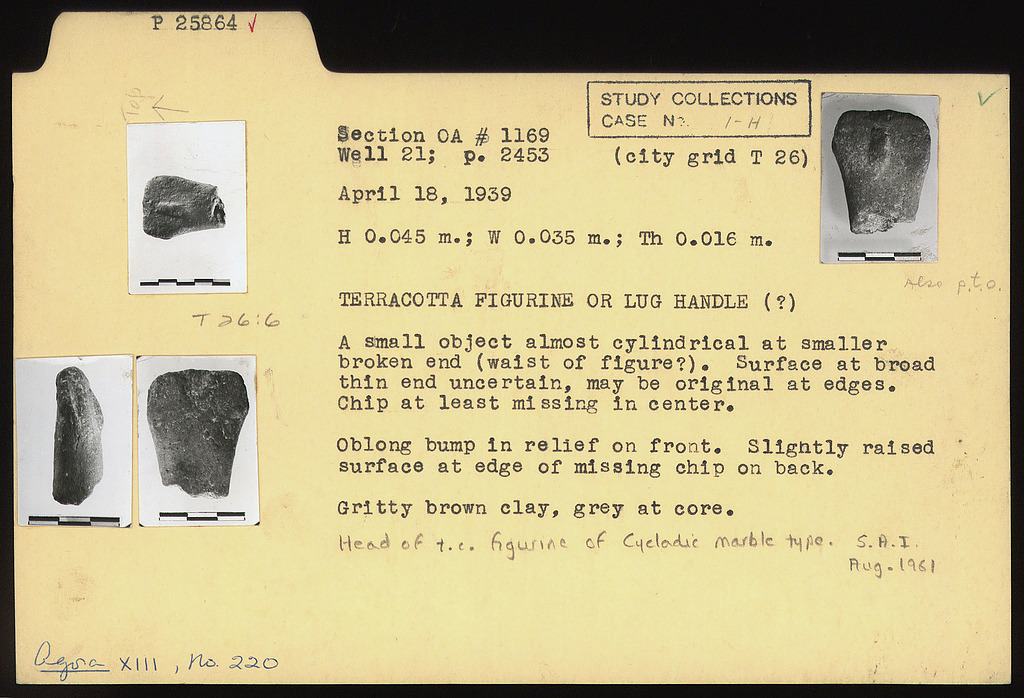 P 25864 ✓
Top
STUDY COLLECTIONS
CASE No. I-H
Section OA # 1169
Well 21; p. 2453 (city grid T 26)
April 18, 1939
H 0.045 m.; W 0.035 m.; Th 0.016 m.
Also p.t.o.
TERRACOTTA FIGURINE OR LUG HANDLE (?)
T 26:6
A small object almost cylindrical at smaller
broken end (waist of figure?). Surface at broad
thin end uncertain, may be original at edges.
Chip at least missing in center.
Oblong bump in relief on front. Slightly raised
surface at edge of missing chip on back.
Gritty brown clay, grey at core.
Head of t.c. figurine of Cycladic marble type. S.A.I.
Aug. 1961
Agora XIII, No. 220